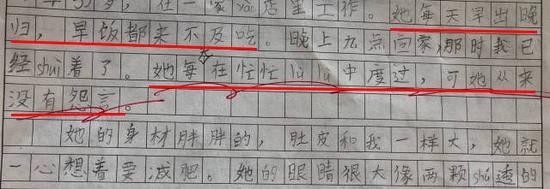 岁，在一家 店里工作。她每天早出晚
归，早饭都来不及吃。晚上九点回家，那时我已
经shuì着了。她每在忙忙lù lù中度过，可她从来
没有怨言。
她的身材胖胖的，肚皮和我一样大，她就
一心想着要减肥。她的眼睛很大像两颗shú透的